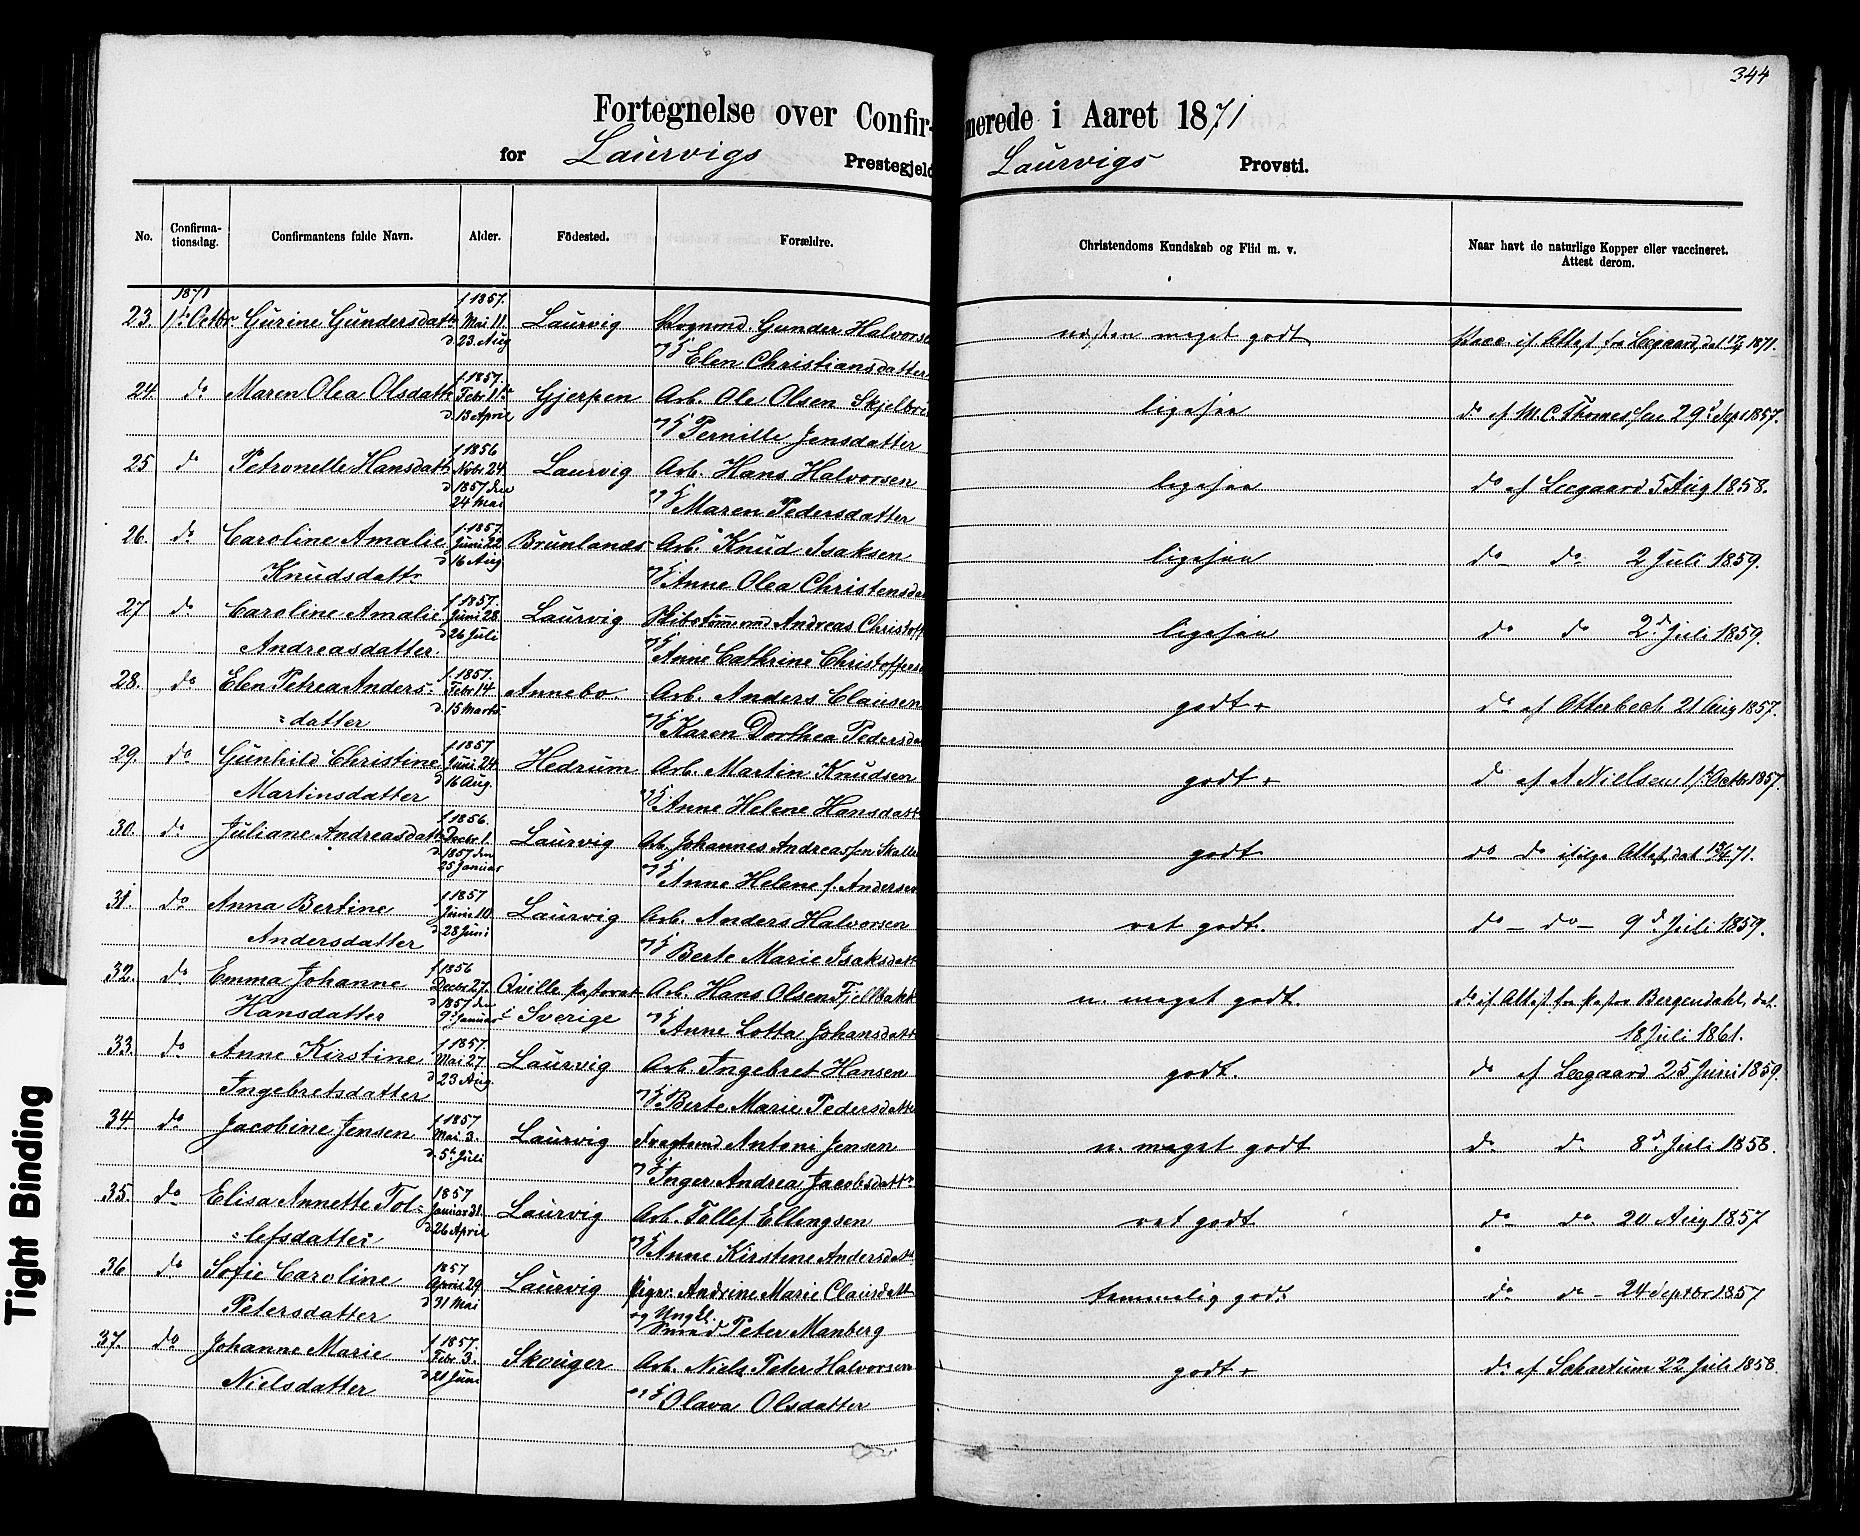 344
Fortegnelse over Confir- merede i Aaret 1871
for Laurvigs Prestegjeld Laurvigs Provsti.
No. Confirma-tionsdag. Confirmantens fulde Navn. Alder. Födested. Forældre. Christendoms Kundskab og Flid m. v. Naar havt de naturlige Kopper eller vaccineret. Attest derom.
1871 f 1857.
23. 1ste Octbr Gurine Gundersdattr Mai 11. Laurvig Gunder Halvorse næsten meget godt Vacc. if Attest fra Leegaard, dat 1871.
d. 23. Aug
Elen Christiansdatter
f. 1857.
24. do Maren Olea Olsdattr Febr. 1ste Gjerpen Arb. Ole Olsen Skjelbre ligesaa do af M. C. Thomessen 29d Sept 1857.
d. 13 April
Pernille Jensdatter
f. 1856
25 do Petronelle Hansdattr Novbr. 24. Laurvig Arb. Hans Halvorsen ligesaa do af Leegaard 5 Aug 1858.
d. 1857 den
24 Mai
Maren Pedersdatter
f. 1857.
26. do Caroline Amalie Juni 22 Brunlanæs Arb. Knud Isaksen ligesaa do do 2 Juli 1859.
d. 16 Aug
Knudsdattr Anne Olea Christensda
f. 1857.
27 do Caroline Amalie Juni 28. Laurvig Skibstømmermd Andreas Christoff ligesaa do do 2d Juli 1859.
d. 26 Juli
Andreasdatter. Anne Cathrine Christoffers
f. 1857.
28. do Elen Petrea Anders- Febr 14. Annebo. Arb. Anders Clausen godt + do af Otterbech 21 Aug 1857.
d. 15 Marts
-datter Karen Dorthea Pedersda
f. 1857
29. do Gunhild Christine Juni 24. Hedrum Arb. Martin Knudsen godt + do af A Nielsen 1ste Octbr 1857.
d 16 Aug.
Martinsdatter Anne Helene Hansdatt
f. 1856.
30. do Juliane Andreasdattr Decbr 1. Laurvig Arb. Johannes Andreassen godt do do ifølge Attest, dat 71.
d. 1857 den
25 Januar
Anne Helene f. Andersen
f. 1857
31. do Anna Bertine Juni 10. Laurvig Arb. Anders Halvorsen ret godt. do - do - 9d Juli 1859.
d 28 Juni
Andersdatter Berte Marie Isaksdatt
f. 1856
32. do Emma Johanne Decbr 27. Qville Pastorat Arb. Hans Olsen Fjellbakk n. meget godt. do if Attest fra Pastor Bergendahl, dat.
d 1857 den
Hansdatter 9d Januar i Sverige Anne Lotta Johansdattr 18 Juli 1861.
f. 1857.
33. do Anne Kirstine Mai 27. Laurvig Arb. Ingebret Hansen godt. do af Leegaard 25 Juni 1859.
d 23 Aug.
Ingebretsdatter Berte Marie Pedersdatte
f. 1857
34. do Jacobine Jensen Mai 3. Laurvig Antoni Jensen n. meget godt do do 8d Juli 1858.
d. 5te Juli
Inger Andrea Jacobsdattr
1857
35. do Elisa Annette Tol- Januar 31. Laurvig Arb. Tollef Ellingsen ret godt do do. 20 Aug 1857
d 26 April
-lefsdatter Anne Kirstine Andersdatt
1857
36 do Sofie Caroline April 29. Laurvig Pige: Andrine Marie Clausdatt temmelig godt do do - 24 Septbr 1857
d 31 Mai
Petersdatter og Ungkl. Smed Peter Manberg
f 1857.
37. do Johanne Marie Febr 3. Skouger Arb. Niels Peter Halvorsen godt + do af Schartum 22 Juli 1858.
d 21 Juni
Nielsdatter Olava Olsdatter
Tight Binding